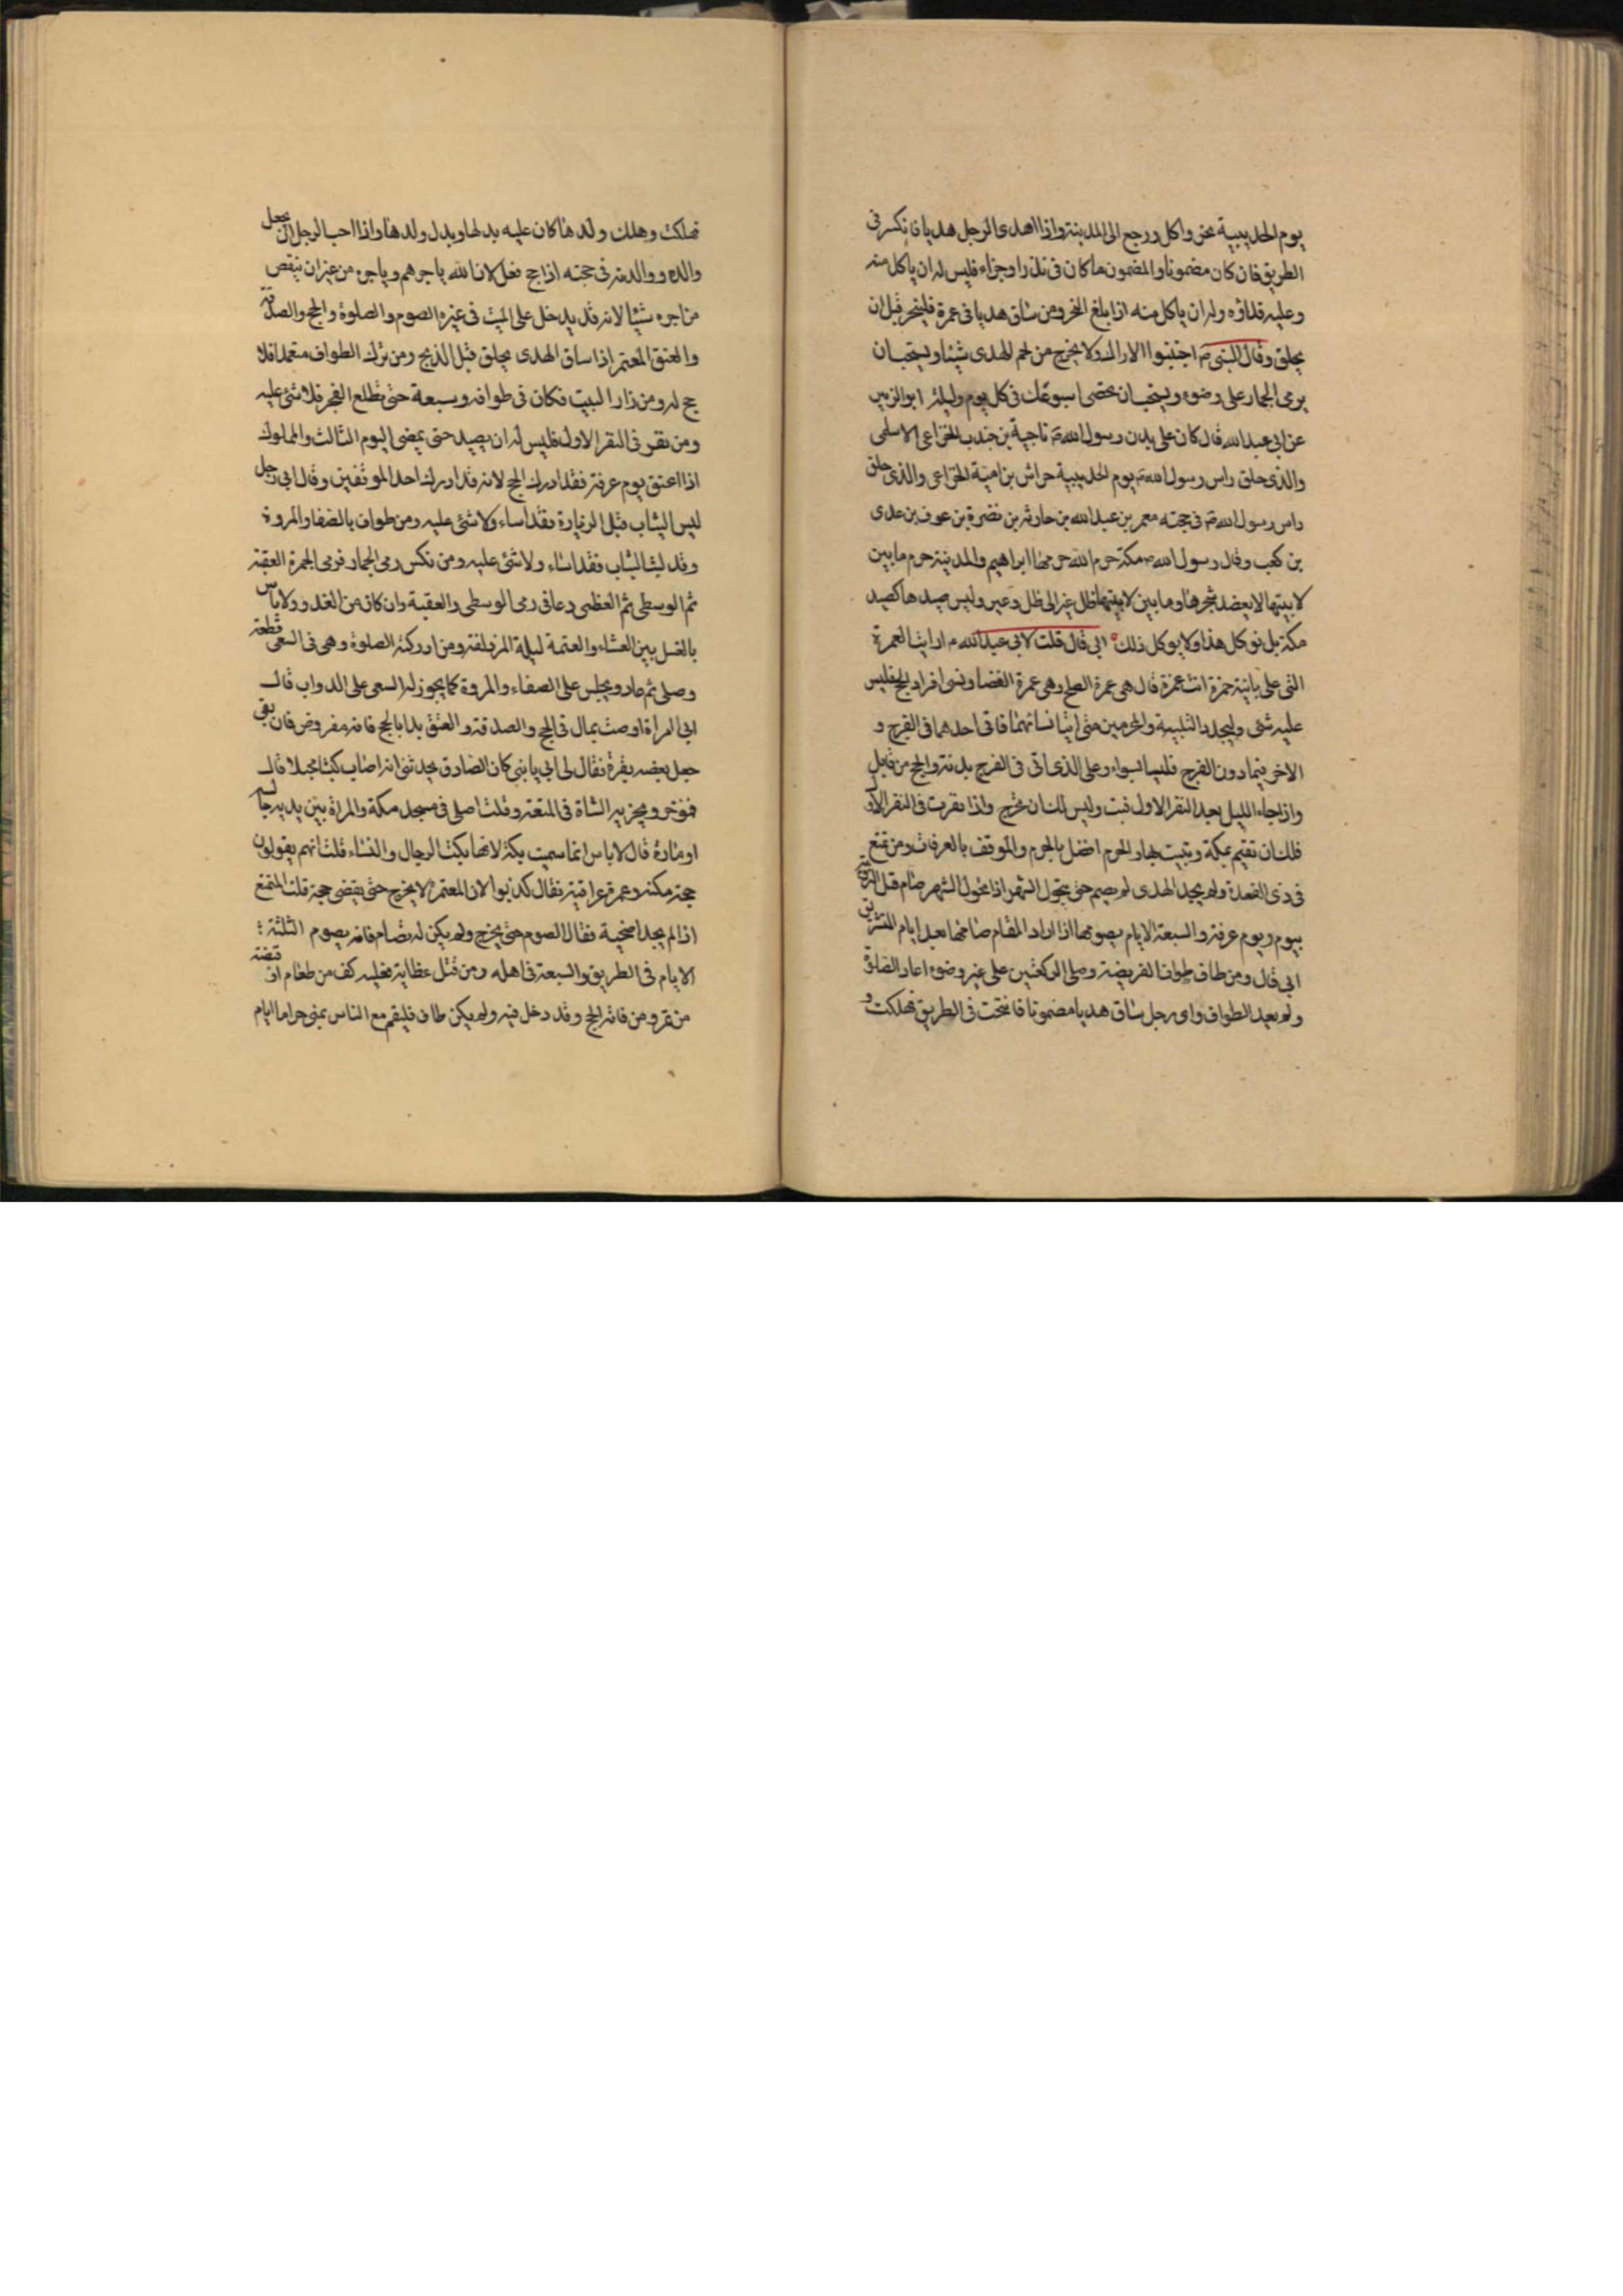 يوم الحديبية نحن واكل ورجع الى المدينة واذا اهدى الرجل هديا فانكسر فى
الطريق فان كان مضمونا والمضمون ما كان فى نذر او جزاء فليس له ان ياكل منه
وعليه فداؤه وله ان ياكل منه اذا بلغ النحر ومن ساق هديا فى عمرة فلينحر قبل ان
يحلق وقال النبى ص اجتنبوا الاراك ولا يخرج من لحم الهدى شيئا ويستحب ان
يرمى الجمار على وضوء ويستحب ان تحصى اسبوعك فى كل يوم وليلة ابو الزبير
عن ابى عبد الله قال كان على بدن رسول الله ص ناجية بن جندب الخزاعى الاسلمى
والذى حلق راس رسول الله ص يوم الحديبية خراش بن امية الخزاعى والذى حلق
راس رسول الله ص فى حجته معمر بن عبد الله بن حارثه بن نضرة بن عوف بن عدى
بن كعب وقال رسول الله ص مكة حرم الله حرمها ابراهيم والمدينة حرم ما بين
لابيتها لا يعضد شجرها وما بين لابيتها ظل عير الى ظل وعير وليس صيدها كصيد
مكة بل نوكل هذا ولا يوكل ذلك ابى قال قلت لابى عبد الله م ارايت العمرة
التى على بابنة حمزة انت عمرة قال هى عمرة الصلح وهى عمرة القضا ونسى افراد الحج فليس
عليه شى وليجدد التلبية والمحرمين متى اتيا نسائهما فاتى احدهما فى الفرج و
الاخر فيما دون الفرج فليسا بسواء وعلى الذى اتى فى الفرج بدنة والحج من قابل
واذا جاء الليل بعد النفر الاول فبت وليس لك ان تخرج واذا نفرت فى النفر الاول
فلك ان تقيم بمكة وتبيت بها والحرم افضل بالحرم والموقف بالعرفات ومن تمتع
فى ذى القعدة ولم يجد الهدى لم يصم حتى يتحول الشهر اذا تحول الشهر صام قبل التروية
بيوم ويوم عرفة والسبعة الايام يصومها اذا اراد المقام صامها بعد ايام التشريق
ابى قال ومن طاف طواف الفريضة وصلى الركعتين على غير وضوء اعاد الصلوة
ولم يعيد الطواف واى رجل ساق هديا مضمونا فانتجت فى الطريق فهلكت و
فهلكت وهلك ولدها كان عليه بدلها وبدل ولدها واذا احب الرجل ان يجعل
والده ووالدته فى حجته اذا حج فعل لان الله ياجرهم وياجره من غير ان ينقص
من اجره شيئا لانه قد يدخل على الميت فى غيره الصوم والصلوة والحج والصدقة
والعتق المعتمر اذا ساق الهدى يحلق قبل الذبح ومن ترك الطواف متعمدا فلا
حج له ومن زار البيت فكان فى طوافه وسبعة حتى تطلع الفجر فلا شئ عليه
ومن نفر فى النفر الاول فليس له ان يصيد حتى يمضى اليوم الثالث والمملوك
اذا اعتق يوم عرفة فقد ادرك الحج لانه قد ادرك احد الموقفين وقال ابى رجل
لبس الثياب قبل الزيارة فقد اساء ولا شئ عليه ومن طواف بالصفا والمروة
وقد لبث الثياب فقد اساء ولا شئ عليه ومن نكس رمى الجمار فرمى الجمرة العقبة
ثم الوسطى ثم العظمى دعا فى رمى الوسطى والعقبة وان كان من الغد ولا باس
بالغسل بين العشاء والعتمة ليلة المزدلفة ومن ادركته الصلوة وهى فى السعى قطعه
وصلى ثم عاد ويجلس على الصفاء والمروة كما يجوز له السعى على الدواب قال
ابى امراة اوصت بمال فى الحج والصدقة والعتق بدا بالحج فانه مفروض فان بقى
جعل بعضه بقرة فقال لى ابى يا بنى كان الصادق يحدثنى انه اصاب كبشا مجبلا قال
فمؤخر ويجزيه الشاة فى المتعة وقلت اصلى فى مسجد مكة والمراة بين يديه جالسه
او مارة قال لا باس انما سميت بكة لانها يبكث الرجال والنساء قلت انهم يقولون
حجة مكية وعمرة عراقية فقال كذبوا لان المعتمر لا يخرج حتى يقضى حجة قلت المتمتع
اذا لم يجد اضحية فقال الصوم حتى يخرج ولم يكن له تصام فانه يصوم الثلثة
الايام فى الطريق والسبعة فى اهله ومن قتل عظاية فعليه كف من طعام او قبضة
من تمر ومن فاته الحج وقد دخل فيه ولم يكن طاف فليقم مع الناس بمنى حراما ايام